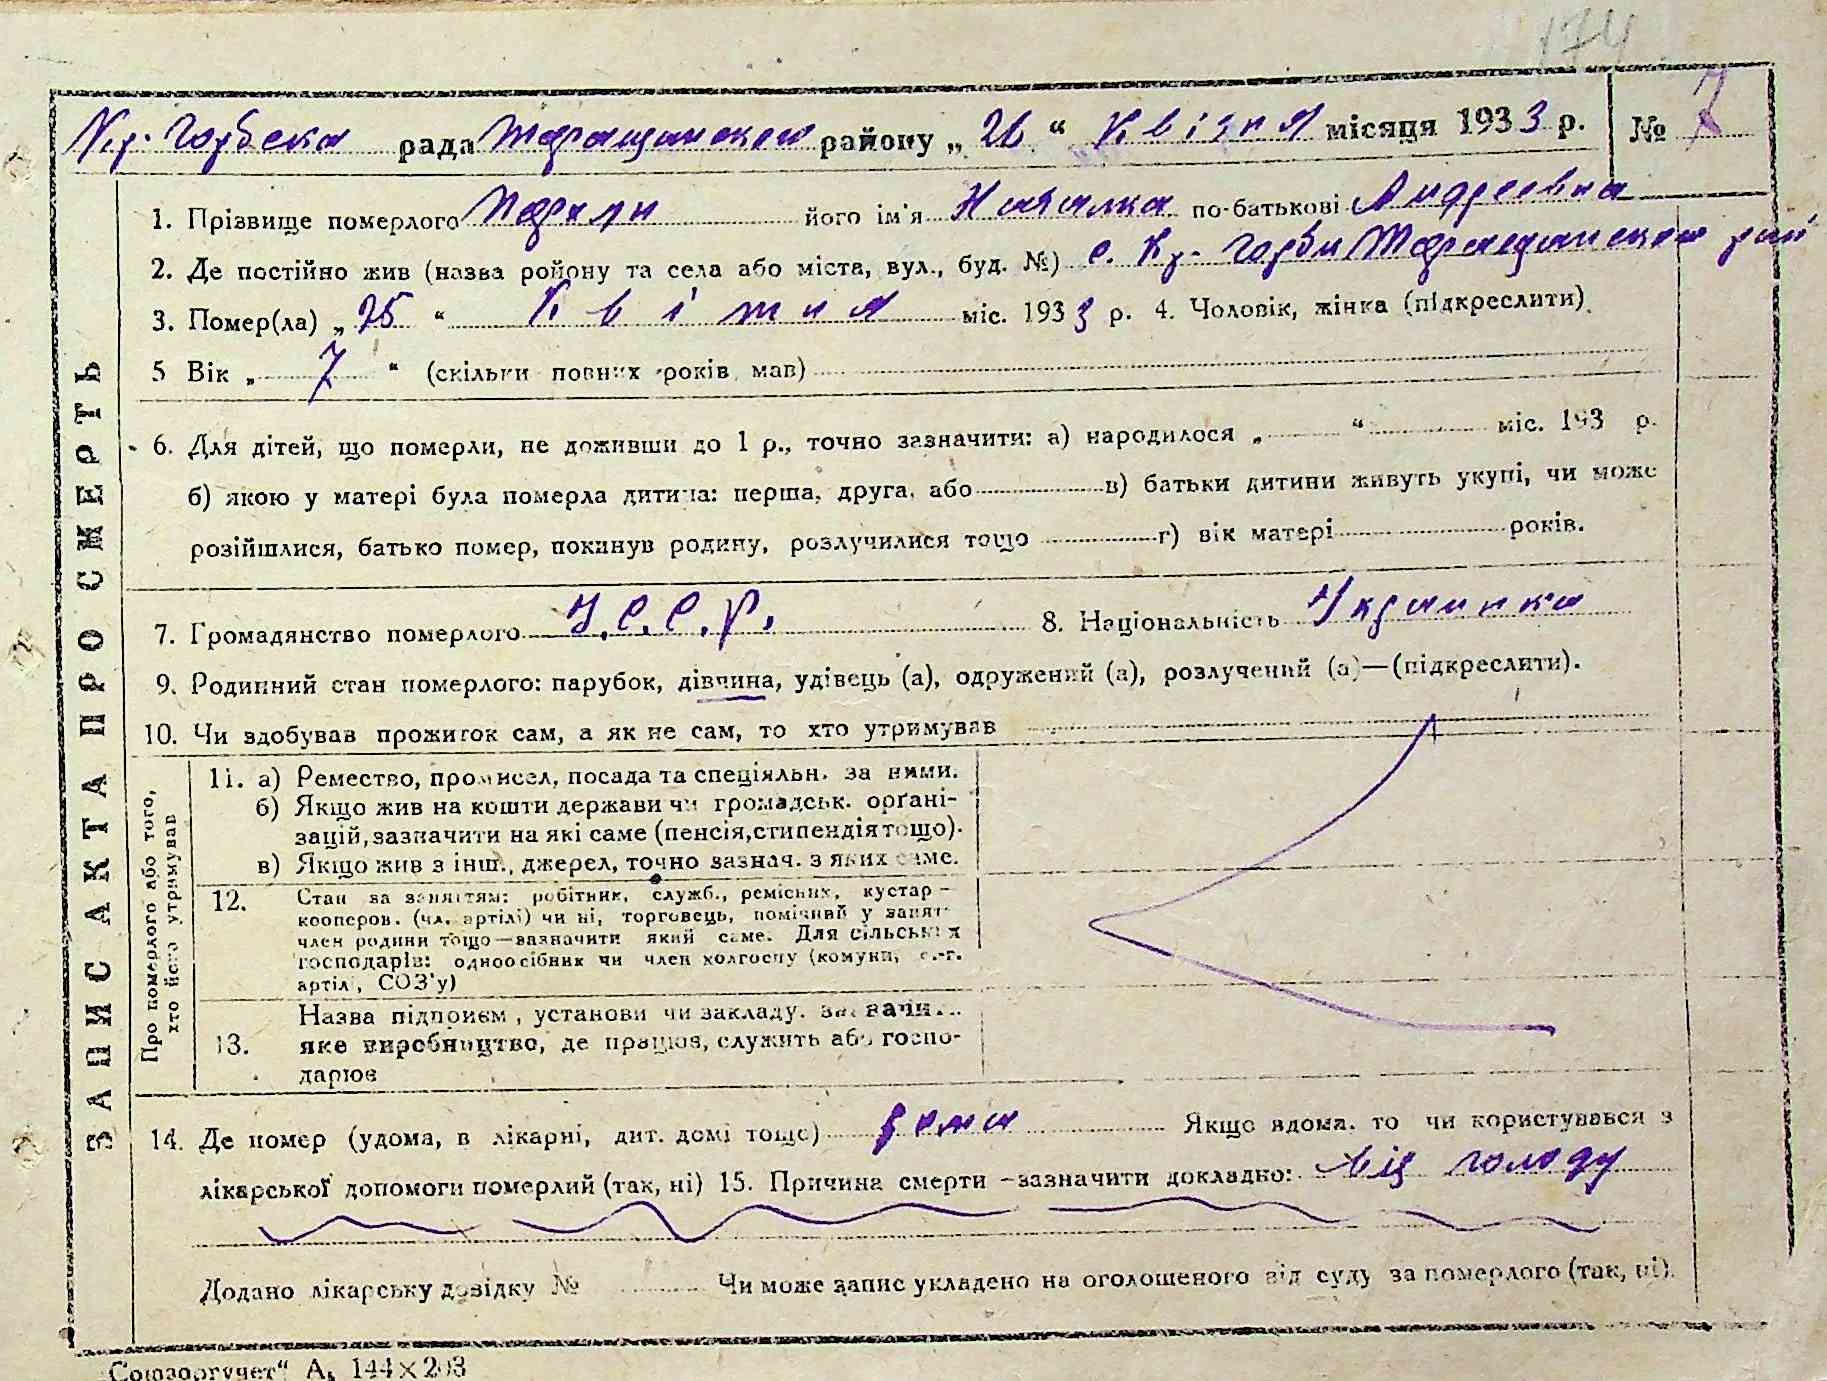 174
Кр. Горбска рада Таращанского району „ 26 “ Квітня місяця 1933 р. № 7
ЗАПИС АКТА ПРО СМЕРТЬ
1. Прізвище померлого його ім'я Наталка по-батькові Андреевна
2. Де постійно жив (назва ройону та села або міста, вул., буд. №) с. Кр. Горби Таращанского рай
3. Помер(ла) „ 25 “ Квітня міс. 1933 р. 4. Чоловік, жінка (підкреслити).
5 Вік „ 7 “ (скільки повних років мав)
6. Для дітей, що померли, не доживши до 1 р., точно зазначити: а) народилося „ “ міс. 193 р.
б) якою у матері була померла дитина: перша, друга, або в) батьки дитини живуть укупі, чи може
розійшлися, батько помер, покинув родину, розлучилися тощо г) вік матері років.
7. Громадянство померлого У.С.С.Р. 8. Національність Украинка
9. Родинний стан померлого: парубок, дівчина, удівець (а), одружений (а), розлучений (а)—(підкреслити).
10. Чи здобував прожиток сам, а як не сам, то хто утримував
Про померлого або того,
хто його утримував
11. а) Ремество, промисел, посада та спеціяльн. за ними.
б) Якщо жив на кошти держави чи громадськ. орґані-
зацій, зазначити на які саме (пенсія, стипендія тощо).
в) Якщо жив з інш., джерел, точно зазнач. з яких саме.
12. Стан за заняттям: робітник, служб., ремісник, кустар —
кооперов. (чл. артілі) чи ні, торговець, помічний у занят
член родини тощо—зазначити який саме. Для сільських
господарів: одноосібник чи член колгоспу (комуни, с.-г.
артілі, СОЗ'у)
Назва підприєм, установи чи закладу. зазначи...
13. яке виробництво, де працює, служить або госпо-
дарює
14. Де помер (удома, в лікарні, дит. домі тощо) дома Якщо вдома. то чи користувався з
лікарської допомоги померлий (так, ні) 15. Причина смерти —зазначити докладно: від голоду
Додано лікарську довідку № Чи може запис укладено на оголошеного від суду за померлого (так, ні).
„Союзоргучет“ А₅ 144×203